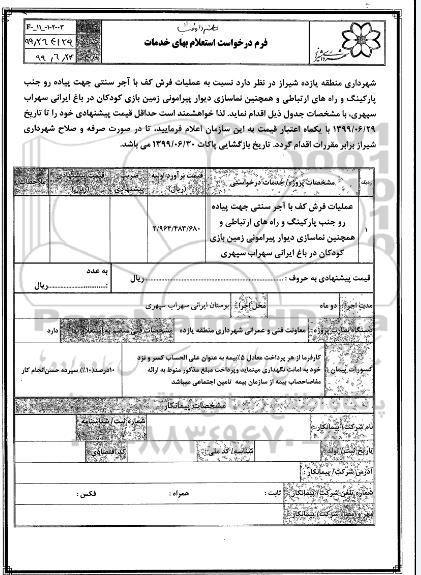 F-۰۱-۱۱-۲۰۰۳
۹۹٫۲۶۴۱۲۹
۹۹٫۶٫۲۴
فرم درخواست استعلام بهای خدمات
شهرداری منطقه یازده شیراز در نظر دارد نسبت به عملیات فرش کف با آجر سنتی جهت پیاده رو جنب
پارکینگ و راه های ارتباطی و همچنین نماسازی دیوار پیرامونی زمین بازی کودکان در باغ ایرانی سهراب
سپهری، با مشخصات جدول ذیل اقدام نماید. لذا خواهشمند است حداقل قیمت پیشنهادی خود را تا تاریخ
۱۳۹۹/۰۶/۲۹ با یکماه اعتبار قیمت به این سازمان اعلام فرمایید، تا در صورت صرفه و صلاح شهرداری
شیراز برابر مقررات اقدام گردد. تاریخ بازگشایی پاکات ۱۳۹۹/۰۶/۳۰ می باشد.
ردیف مشخصات پروژه/ خدمات درخواستی قیمت برآورد اولیه (ریال)
۱ عملیات فرش کف با آجر سنتی جهت پیاده
رو جنب پارکینگ و راه های ارتباطی و
همچنین نماسازی دیوار پیرامونی زمین بازی
کودکان در باغ ایرانی سهراب سپهری
۲/۹۶۴/۴۸۳/۶۸۰
قیمت پیشنهادی به حروف : ......ریال
به عدد
:......ریال
مدت اجرا: دو ماه محل اجرا: بوستان ایرانی سهراب سپهری
دستگاه نظارت پروژه : معاونت فنی و عمرانی شهرداری منطقه یازده دارد
کسورات پیمان : کارفرما از هر پرداخت معادل ۵٪ بیمه به عنوان علی الحساب کسر و نزد
خود به امانت نگهداری مینماید وپرداخت مبلغ مذکور منوط به ارائه
مفاصاحساب بیمه از سازمان بیمه تامین اجتماعی میباشد
۱۰درصد(۱۰٪) سپرده حسن انجام کار
مشخصات پیمانکار
نام شرکت/ پیمانکار : شماره ثبت/ شناسنامه
تاریخ ثبت/ تولد : شناسه/ کد ملی : کد اقتصادی :
آدرس شرکت/ پیمانکار :
شماره تلفن شرکت/ پیمانکار : ثابت : همراه : فکس :
مهر و امضا شرکت/ پیمانکار